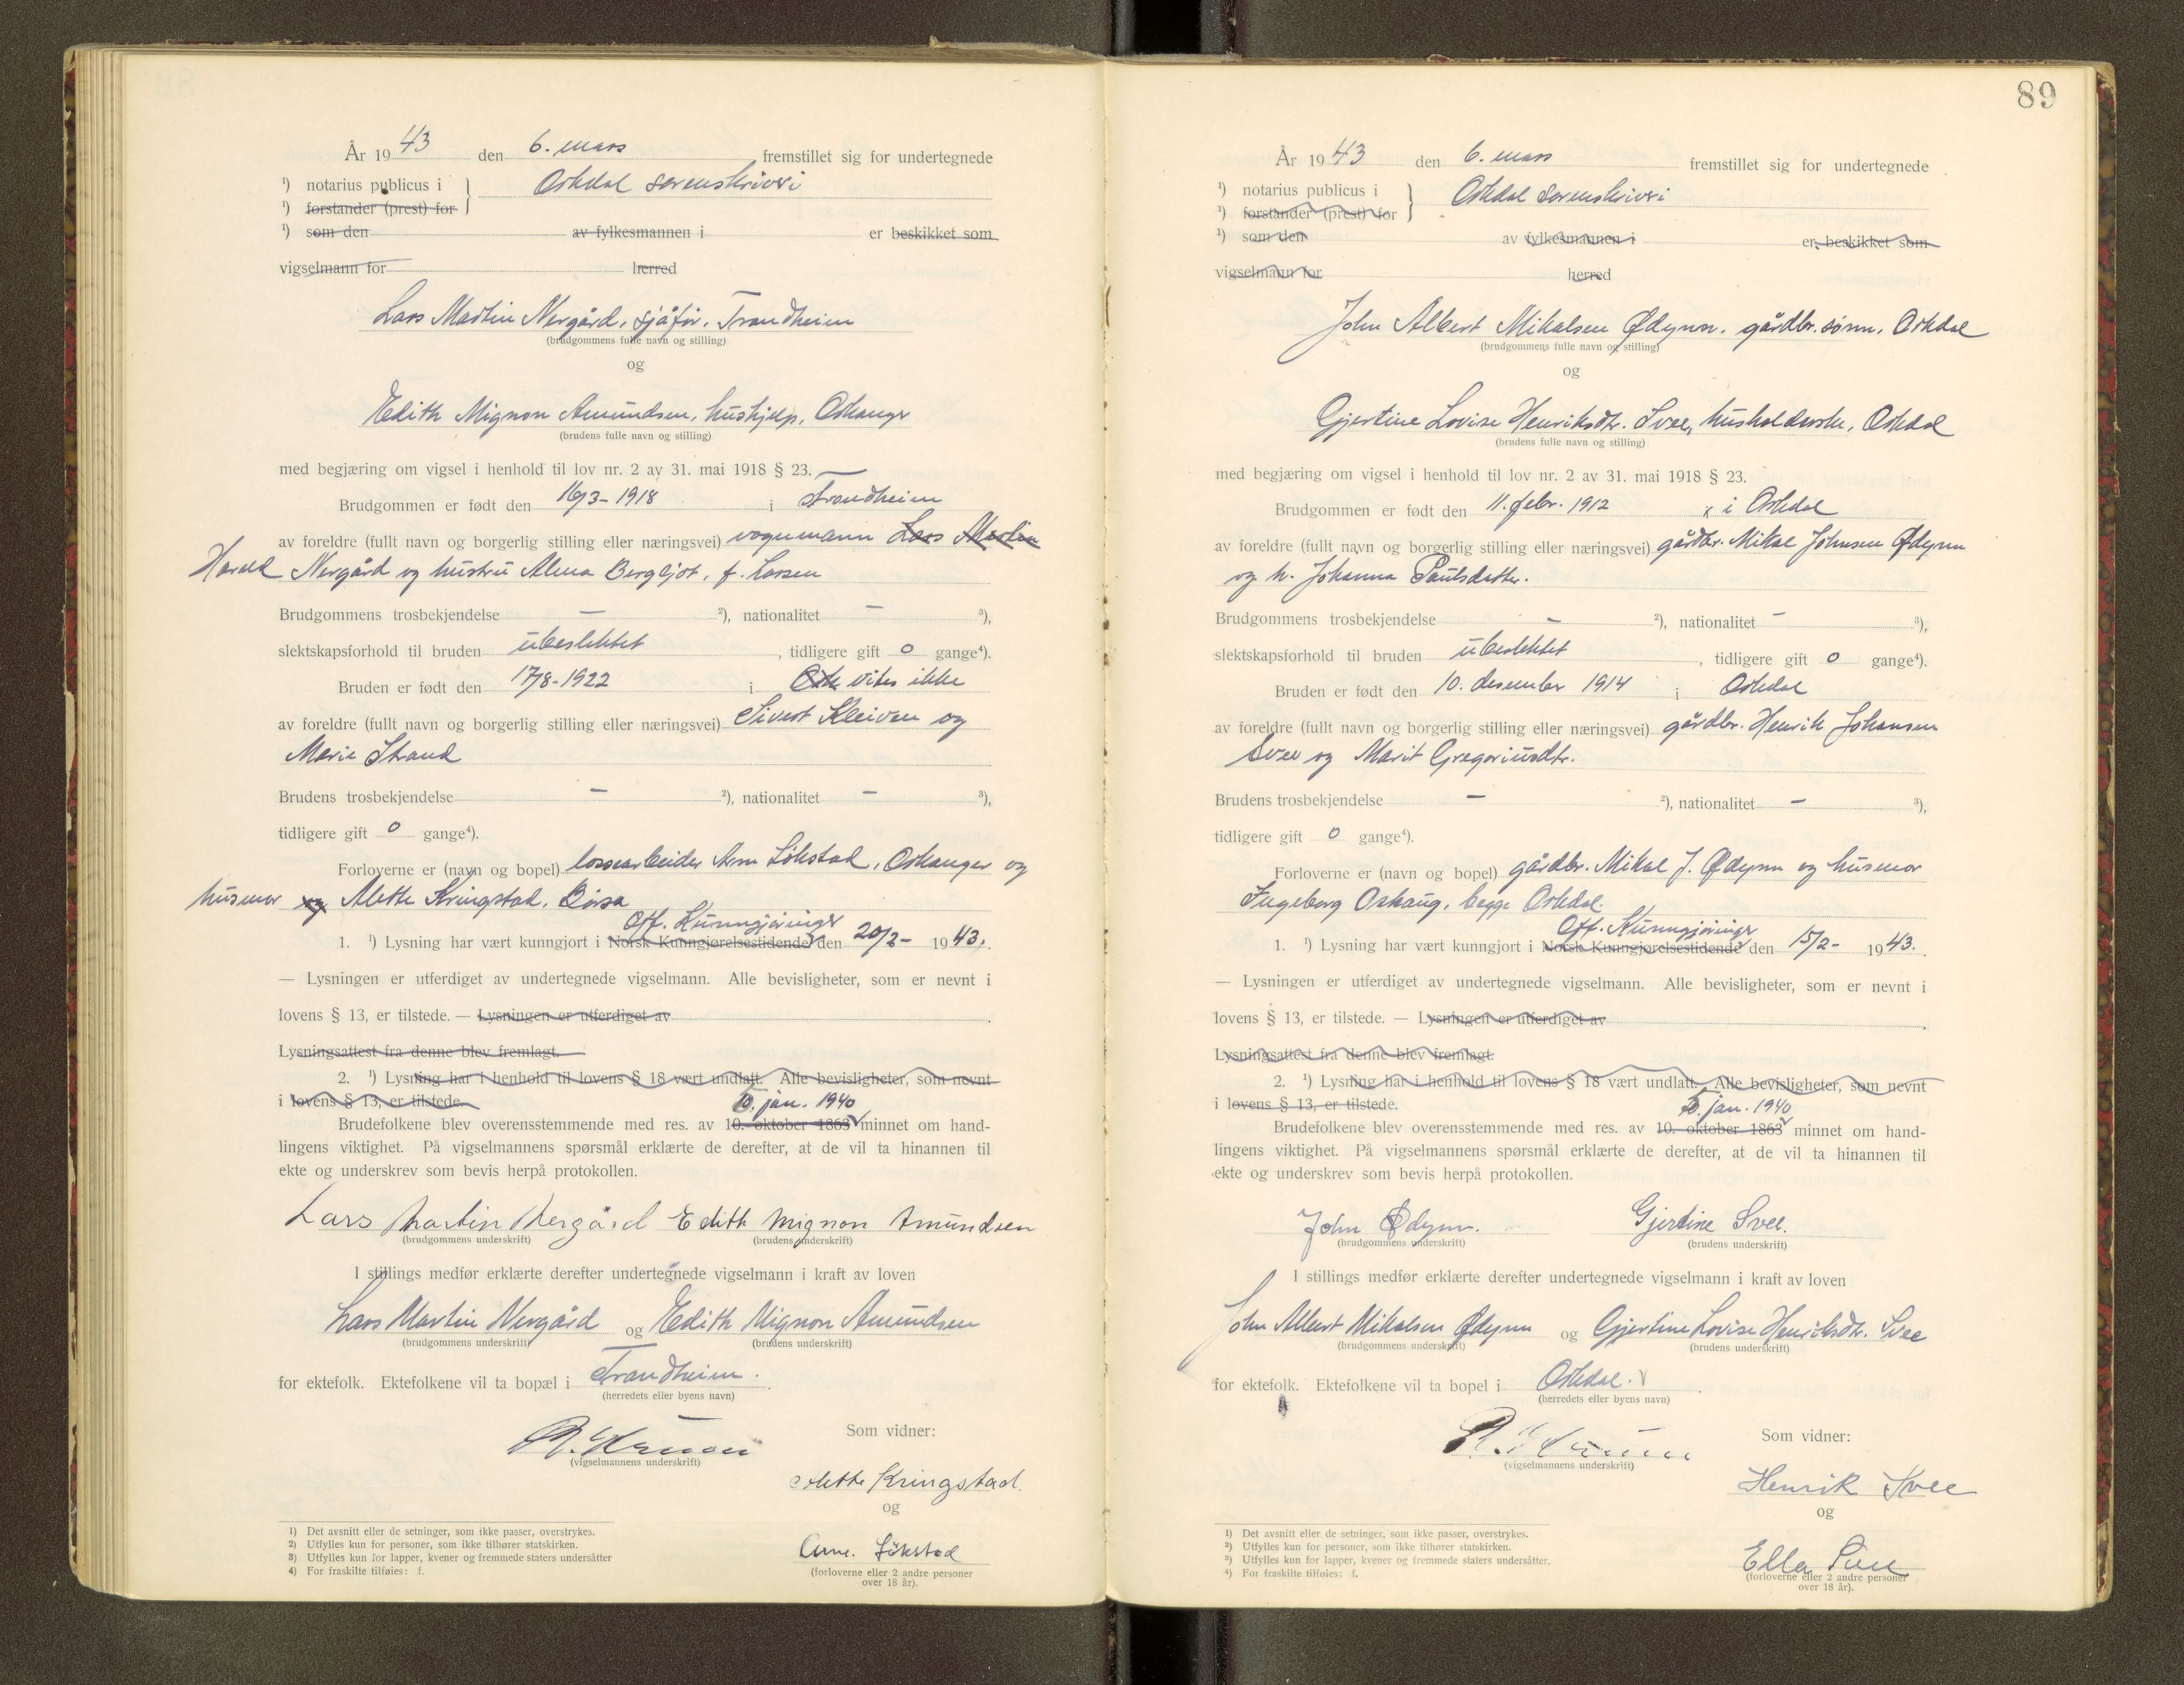 År 1943 den 6. mars fremstillet sig for undertegnede
¹) notarius publicus i } Orkdal sorenskriveri
¹) forstander (prest) for
¹) som den av fylkesmannen i er beskikket som
vigselmann for herred
Lars Martin Nergård, sjåfør, Trondheim
(brudgommens fulle navn og stilling)
og
Edith Mignon Amundsen, hushjelp, Orkanger
(brudens fulle navn og stilling)
med begjæring om vigsel i henhold til lov nr. 2 av 31. mai 1918 § 23.
Brudgommen er født den 16/3-1918 i Trondheim
av foreldre (fullt navn og borgerlig stilling eller næringsvei) vognmann Lars Martin
Harald Nergård og hustru Alma Bergljot, f. Larsen
Brudgommens trosbekjendelse — ²), nationalitet — ³),
slektskapsforhold til bruden ubeslektet, tidligere gift 0 gange⁴).
Bruden er født den 17/8-1922 i Ork vites ikke
av foreldre (fullt navn og borgerlig stilling eller næringsvei) Sivert Kleiven og
Marie Strand
Brudens trosbekjendelse — ²), nationalitet — ³),
tidligere gift 0 gange⁴).
Forloverne er (navn og bopel) lossearbeider Arne Lökstad, Orkanger og
husmor og Mette Kringstad, Börsa
Off. Kunngjöringer
1. ¹) Lysning har vært kunngjort i Norsk Kunngjørelsestidende den 20/2- 1943.
— Lysningen er utferdiget av undertegnede vigselmann. Alle bevisligheter, som er nevnt i
lovens § 13, er tilstede. — Lysningen er utferdiget av
Lysningsattest fra denne blev fremlagt.
2. ¹) Lysning har i henhold til lovens § 18 vært undlatt. Alle bevisligheter, som nevnt
i lovens § 13, er tilstede.
5. jan. 1940
Brudefolkene blev overensstemmende med res. av 10. oktober 1863 minnet om hand-
lingens viktighet. På vigselmannens spørsmål erklærte de derefter, at de vil ta hinannen til
ekte og underskrev som bevis herpå protokollen.
Lars Martin Nergård Edith Mignon Amundsen
(brudgommens underskrift) (brudens underskrift)
I stillings medfør erklærte derefter undertegnede vigselmann i kraft av loven
Lars Martin Nergård og Edith Mignon Amundsen
(brudgommens underskrift) (brudens underskrift)
for ektefolk. Ektefolkene vil ta bopæl i Trondheim.
(herredets eller byens navn)
Som vidner:
(vigselmannens underskrift)
Mette Kringstad.
og
Arne. Lökstad
(forloverne eller 2 andre personer
over 18 år).
1) Det avsnitt eller de setninger, som ikke passer, overstrykes.
2) Utfylles kun for personer, som ikke tilhører statskirken.
3) Utfylles kun for lapper, kvener og fremmede staters undersåtter
4) For fraskilte tilføies: f.
89
År 1943 den 6. mars fremstillet sig for undertegnede
¹) notarius publicus i } Orkdal sorenskriveri
¹) forstander (prest) for
¹) som den av fylkesmannen i er beskikket som
vigselmann for herred
John Albert Mikalsen Ødynn, gårdbr. sønn, Orkdal
(brudgommens fulle navn og stilling)
og
Gjertine Lovise Henriksdtr. Svee, husholderske, Orkdal
(brudens fulle navn og stilling)
med begjæring om vigsel i henhold til lov nr. 2 av 31. mai 1918 § 23.
Brudgommen er født den 11. febr. 1912 i Orkdal
av foreldre (fullt navn og borgerlig stilling eller næringsvei) gårdbr. Mikal Johnsen Ødynn
og h. Johanna Paulsdatter.
Brudgommens trosbekjendelse — ²), nationalitet — ³),
slektskapsforhold til bruden ubeslektet, tidligere gift 0 gange⁴).
Bruden er født den 10. desember 1914 i Orkdal
av foreldre (fullt navn og borgerlig stilling eller næringsvei) gårdbr. Henrik Johansen
Svee og Marit Gregoriusdtr.
Brudens trosbekjendelse — ²), nationalitet — ³),
tidligere gift 0 gange⁴).
Forloverne er (navn og bopel) gårdbr. Mikal J. Ødynn og husmor
Ingeborg Oshaug, begge Orkdal.
Off. Kunngjöringer
1. ¹) Lysning har vært kunngjort i Norsk Kunngjørelsestidende den 15/2- 1943.
— Lysningen er utferdiget av undertegnede vigselmann. Alle bevisligheter, som er nevnt i
lovens § 13, er tilstede. — Lysningen er utferdiget av
Lysningsattest fra denne blev fremlagt.
2. ¹) Lysning har i henhold til lovens § 18 vært undlatt. Alle bevisligheter, som nevnt
i lovens § 13, er tilstede.
5. jan. 1940
Brudefolkene blev overensstemmende med res. av 10. oktober 1863 minnet om hand-
lingens viktighet. På vigselmannens spørsmål erklærte de derefter, at de vil ta hinannen til
ekte og underskrev som bevis herpå protokollen.
John Ødynn. Gjertine Svee.
(brudgommens underskrift) (brudens underskrift)
I stillings medfør erklærte derefter undertegnede vigselmann i kraft av loven
John Albert Mikalsen Ødynn og Gjertine Lovise Henriksdtr. Svee
(brudgommens underskrift) (brudens underskrift)
for ektefolk. Ektefolkene vil ta bopel i Orkdal.
(herredets eller byens navn)
Som vidner:
(vigselmannens underskrift)
Henrik Svee
og
Ella Svee
(forloverne eller 2 andre personer
over 18 år).
1) Det avsnitt eller de setninger, som ikke passer, overstrykes.
2) Utfylles kun for personer, som ikke tilhører statskirken.
3) Utfylles kun for lapper, kvener og fremmede staters undersåtter.
4) For fraskilte tilføies: f.